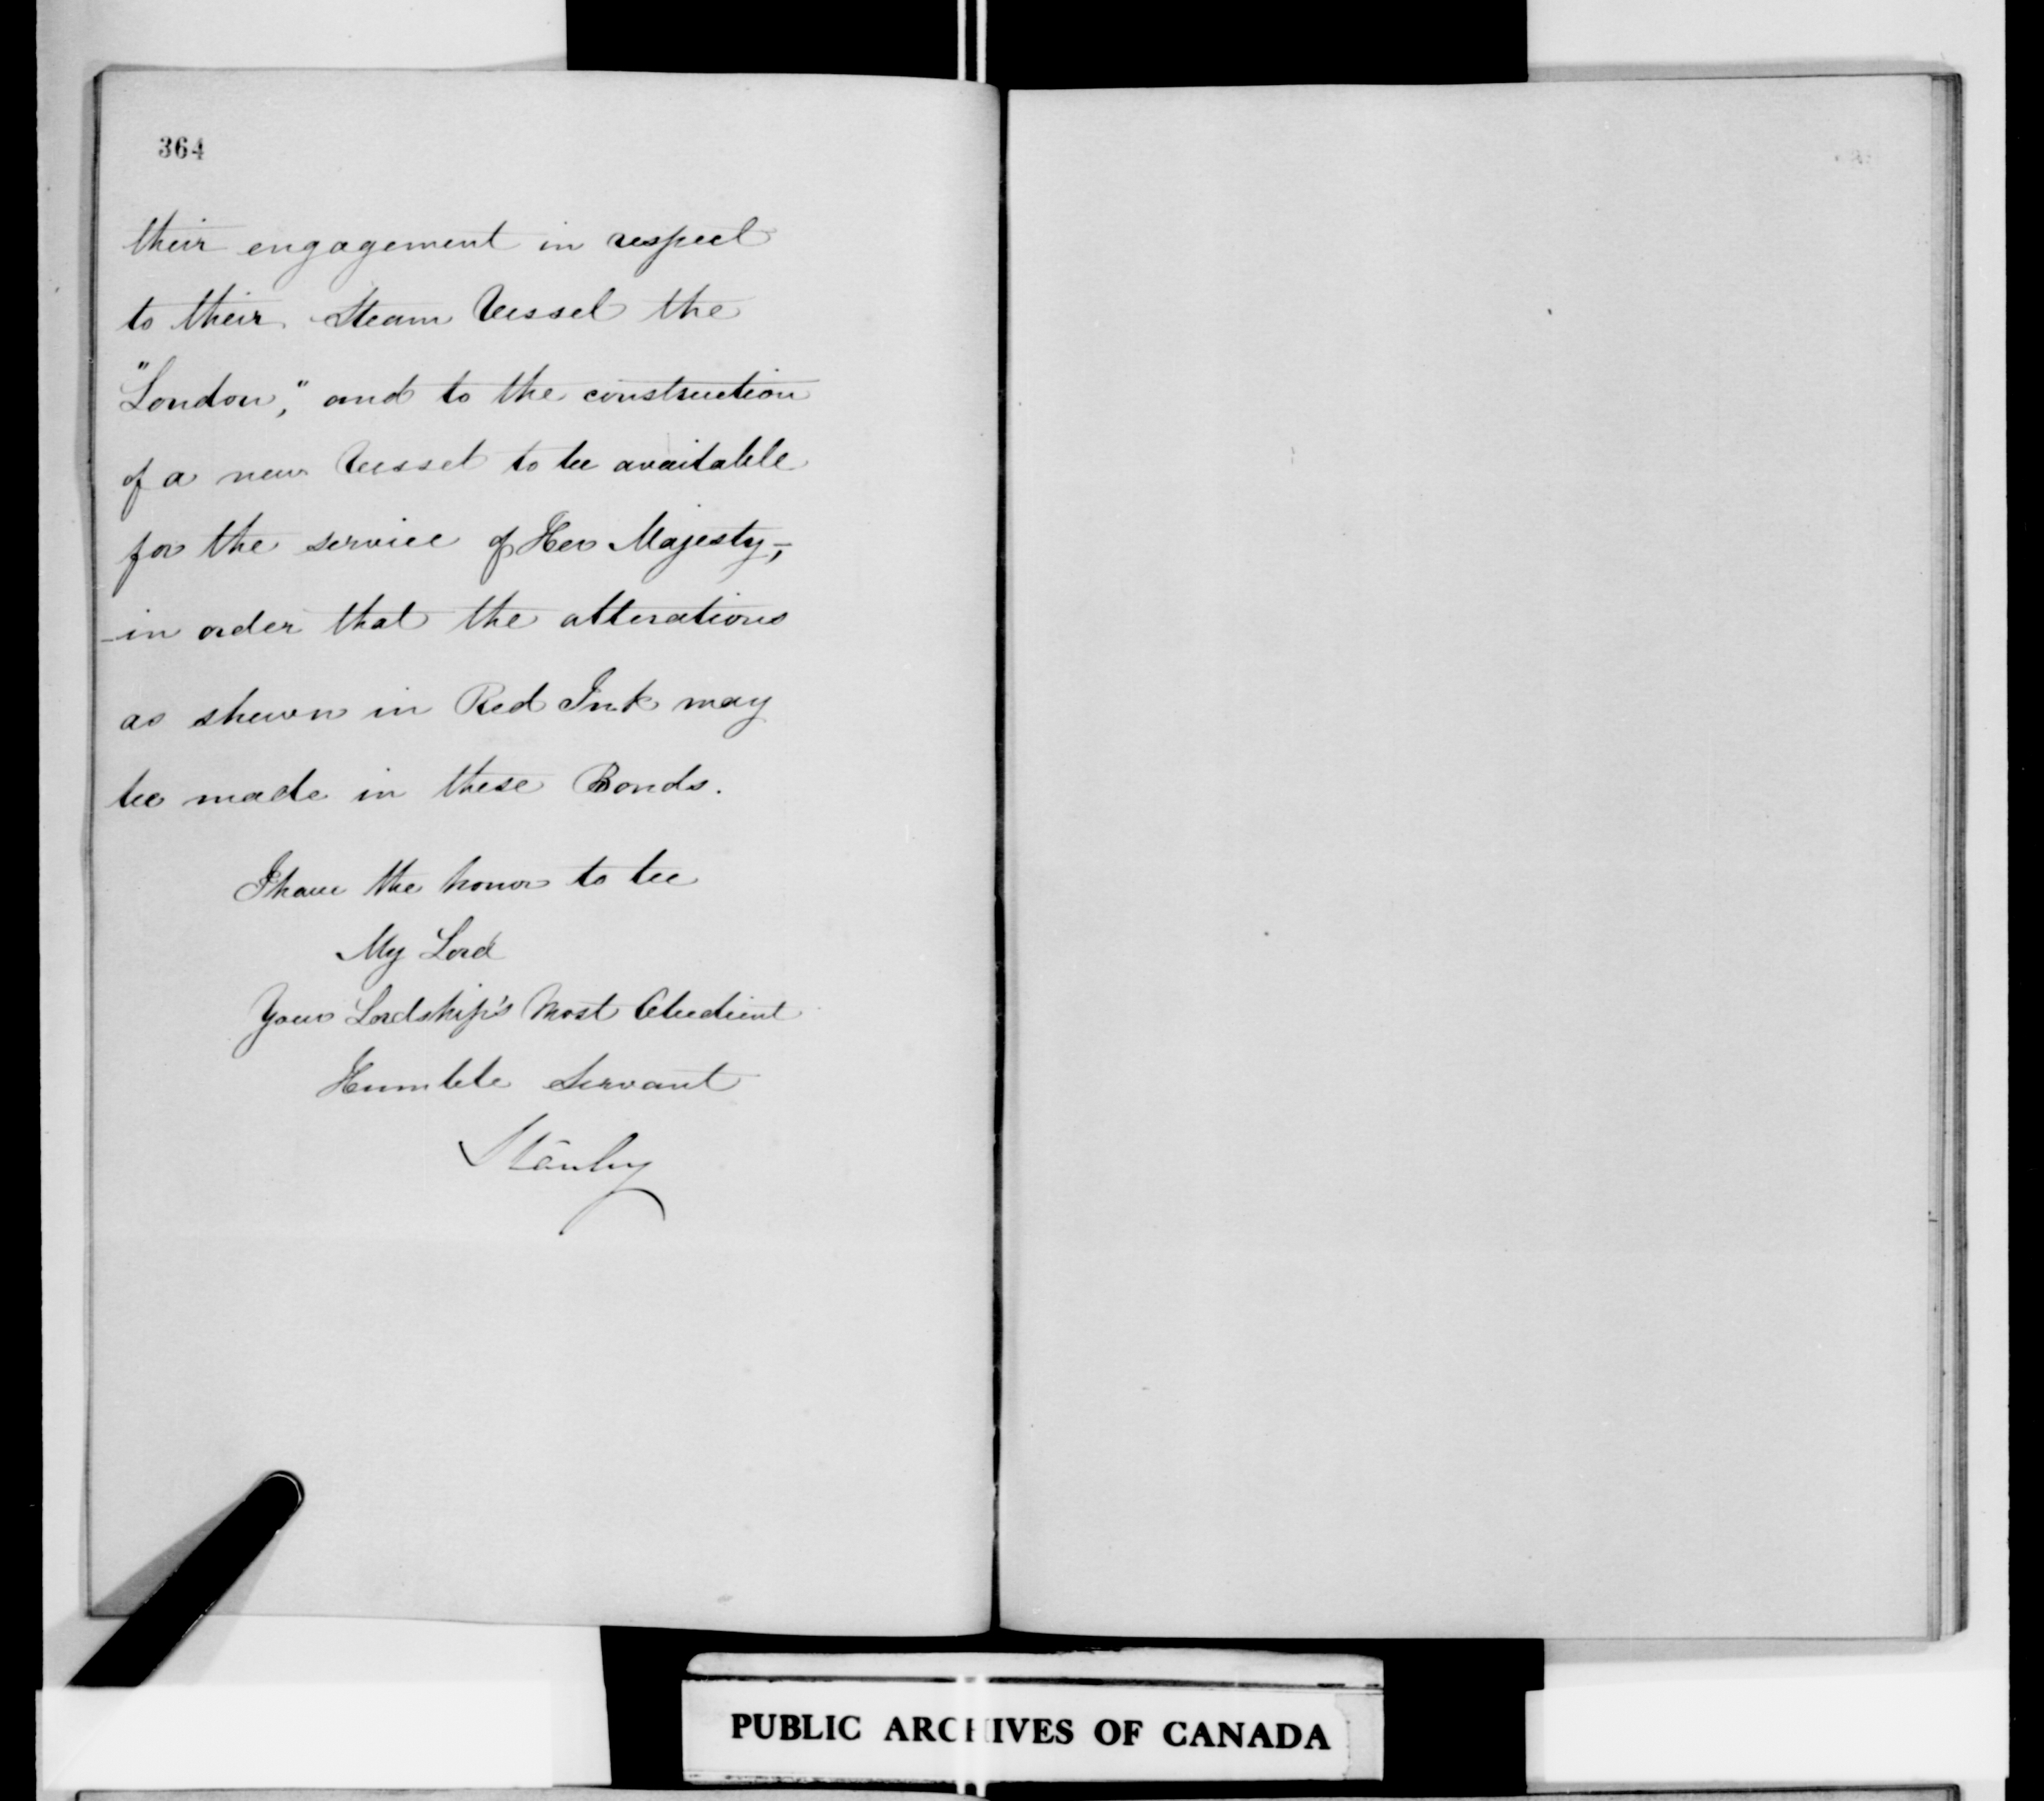 364
their engagement in respect
to their Steam Vessel the
"London," and to the construction
of a new Vessel to be available
for the service of Her Majesty,-
-in order that the alterations
as shewn in Red Ink may
be made in these Bonds.
I have the honor to be
My Lord
Your Lordship's Most Obedient
Humble Servant
Stanley
PUBLIC ARCHIVES OF CANADA